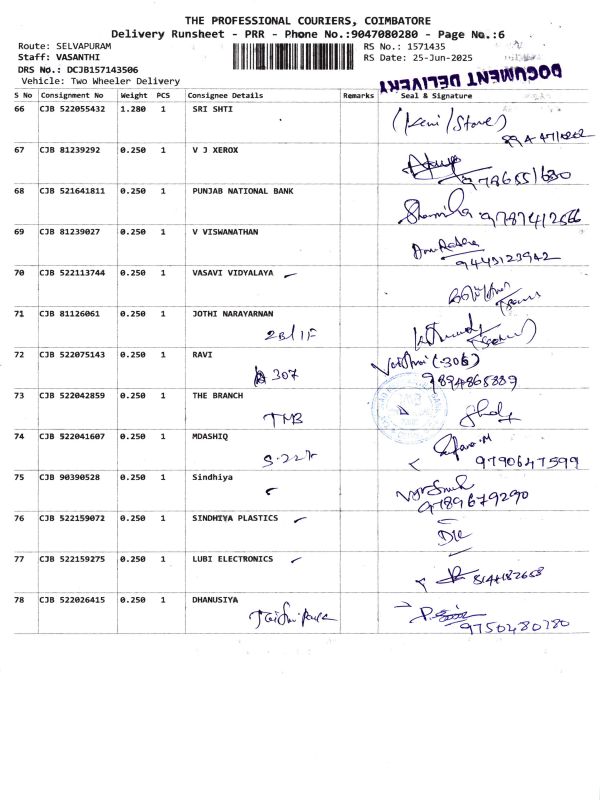 THE PROFESSIONAL COURIERS, COIMBATORE
Delivery Runsheet - PRR - Phone No.:9047080280 - Page No.:6
Route: SELVAPURAM RS No.: 1571435
Staff: VASANTHI RS Date: 25-Jun-2025
DRS No.: DCJB157143506
Vehicle: Two Wheeler Delivery
DOCUMENT DELIVERY
S No Consignment No Weight PCS Consignee Details Remarks Seal & Signature
66 CJB 522055432 1.280 1 SRI SHTI
67 CJB 81239292 0.250 1 V J XEROX
9786551680
68 CJB 521641811 0.250 1 PUNJAB NATIONAL BANK
9787412566
69 CJB 81239027 0.250 1 V VISWANATHAN
9443123942
70 CJB 522113744 0.250 1 VASAVI VIDYALAYA
71 CJB 81126061 0.250 1 JOTHI NARAYARNAN
2B/1F
72 CJB 522075143 0.250 1 RAVI
307 (306)
9894868889
73 CJB 522042859 0.250 1 THE BRANCH
TMB
74 CJB 522041607 0.250 1 MDASHIQ
9790647599
75 CJB 90390528 0.250 1 Sindhiya
9789679290
76 CJB 522159072 0.250 1 SINDHIYA PLASTICS
77 CJB 522159275 0.250 1 LUBI ELECTRONICS
78 CJB 522026415 0.250 1 DHANUSIYA
9750480780